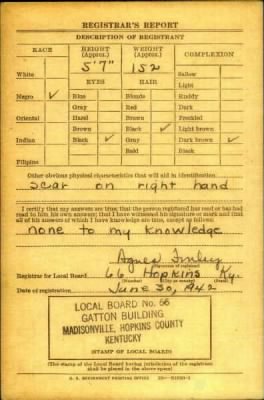 REGISTRAR'S REPORT
DESCRIPTION OF REGISTRANT
RACE HEIGHT (Approx.) WEIGHT (Approx.) COMPLEXION
5'7" 152
White Sallow
EYES HAIR Light
Negro ✓ Blue Blonde Ruddy
Gray Red Dark
Oriental Hazel Brown Freckled
Brown Black ✓ Light brown
Indian Black ✓ Gray Dark brown ✓
Bald Black
Filipino
Other obvious physical characteristics that will aid in identification
scar on right hand
I certify that my answers are true; that the person registered has read or has had
read to him his own answers; that I have witnessed his signature or mark and that
all of his answers of which I have knowledge are true, except as follows:
none to my knowledge
Agnes Finley
(Signature of registrar)
Registrar for Local Board 66 Hopkins Ky.
(Number) (City or county) (State)
Date of registration June 30, 1942
LOCAL BOARD No. 66
GATTON BUILDING
MADISONVILLE, HOPKINS COUNTY
KENTUCKY
(STAMP OF LOCAL BOARD)
(The stamp of the Local Board having jurisdiction of the registrant
shall be placed in the above space)
U. S. GOVERNMENT PRINTING OFFICE